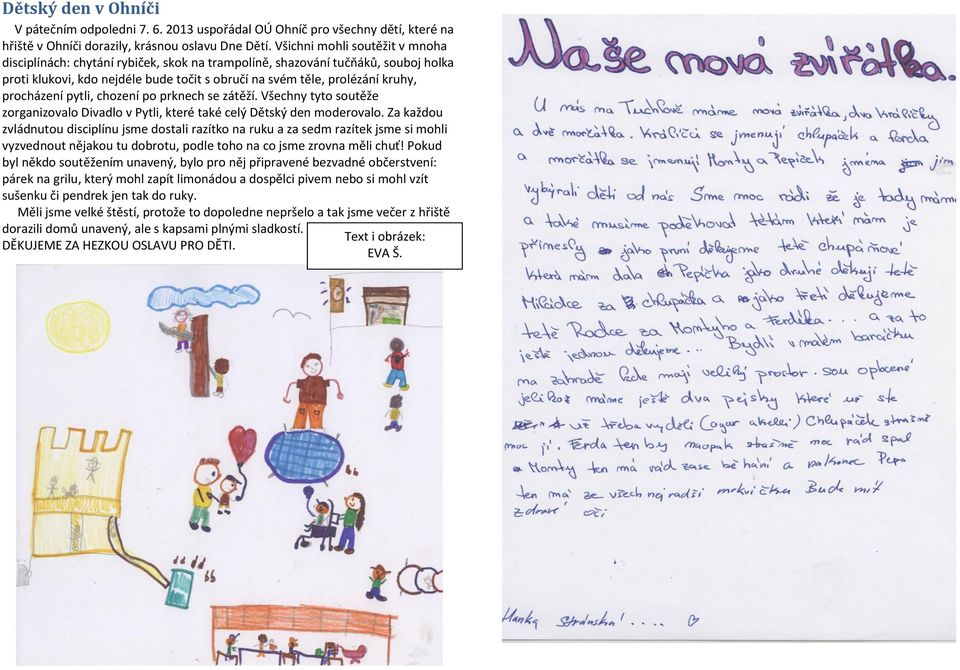 Dětský den v Ohníči
V pátečním odpoledni 7. 6. 2013 uspořádal OÚ Ohníč pro všechny dětí, které na
hřiště v Ohníči dorazily, krásnou oslavu Dne Dětí. Všichni mohli soutěžit v mnoha
disciplínách: chytání rybiček, skok na trampolíně, shazování tučňáků, souboj holka
proti klukovi, kdo nejdéle bude točit s obručí na svém těle, prolézání kruhy,
procházení pytli, chození po prknech se zátěží. Všechny tyto soutěže
zorganizovalo Divadlo v Pytli, které také celý Dětský den moderovalo. Za každou
zvládnutou disciplínu jsme dostali razítko na ruku a za sedm razítek jsme si mohli
vyzvednout nějakou tu dobrotu, podle toho na co jsme zrovna měli chuť! Pokud
byl někdo soutěžením unavený, bylo pro něj připravené bezvadné občerstvení:
párek na grilu, který mohl zapít limonádou a dospělci pivem nebo si mohl vzít
sušenku či pendrek jen tak do ruky.
Měli jsme velké štěstí, protože to dopoledne nepršelo a tak jsme večer z hřiště
dorazili domů unavený, ale s kapsami plnými sladkostí.
DĚKUJEME ZA HEZKOU OSLAVU PRO DĚTI.
Text i obrázek:
EVA Š.
Naše nová zvířátka.
U nás na Tuchlově máme nová zvířátka, dva králíčky
a dvě morčátka. Králíčci se jmenují chlupáček a ferda
a morčátka se jmenují Monty a Pepíček jména jim
vybýrali děti od nás Sme moc rádi že je tady máme
a také musíme poděkovat tětám kteří nám je
přinesly jako první děkujeme tetě chupáňové
která nám dala Pepíčka jako druhé děkuji tetě
Miládce za chlupáčka a jako třetí děkujeme
tetě Radce za Montyho a Ferdíka... a za to
ještě jednou děkujeme... Bydlí v malém baráčku
na zahradě kde mají veliký prostor. sou oplocené
jelikož máme ještě dva pejsky které uř ste
uř třeba vyděli (ogar a kelli) Chlupáček strašně
moc jí. Ferda ten by naopak strašně moc rád spal
Monty ten má rád zase běhání a nakonec Pepa
ten má ze všech nejradši mrkvičku Bude mít
zdravé oči
Hanka Stránská! .... ♡